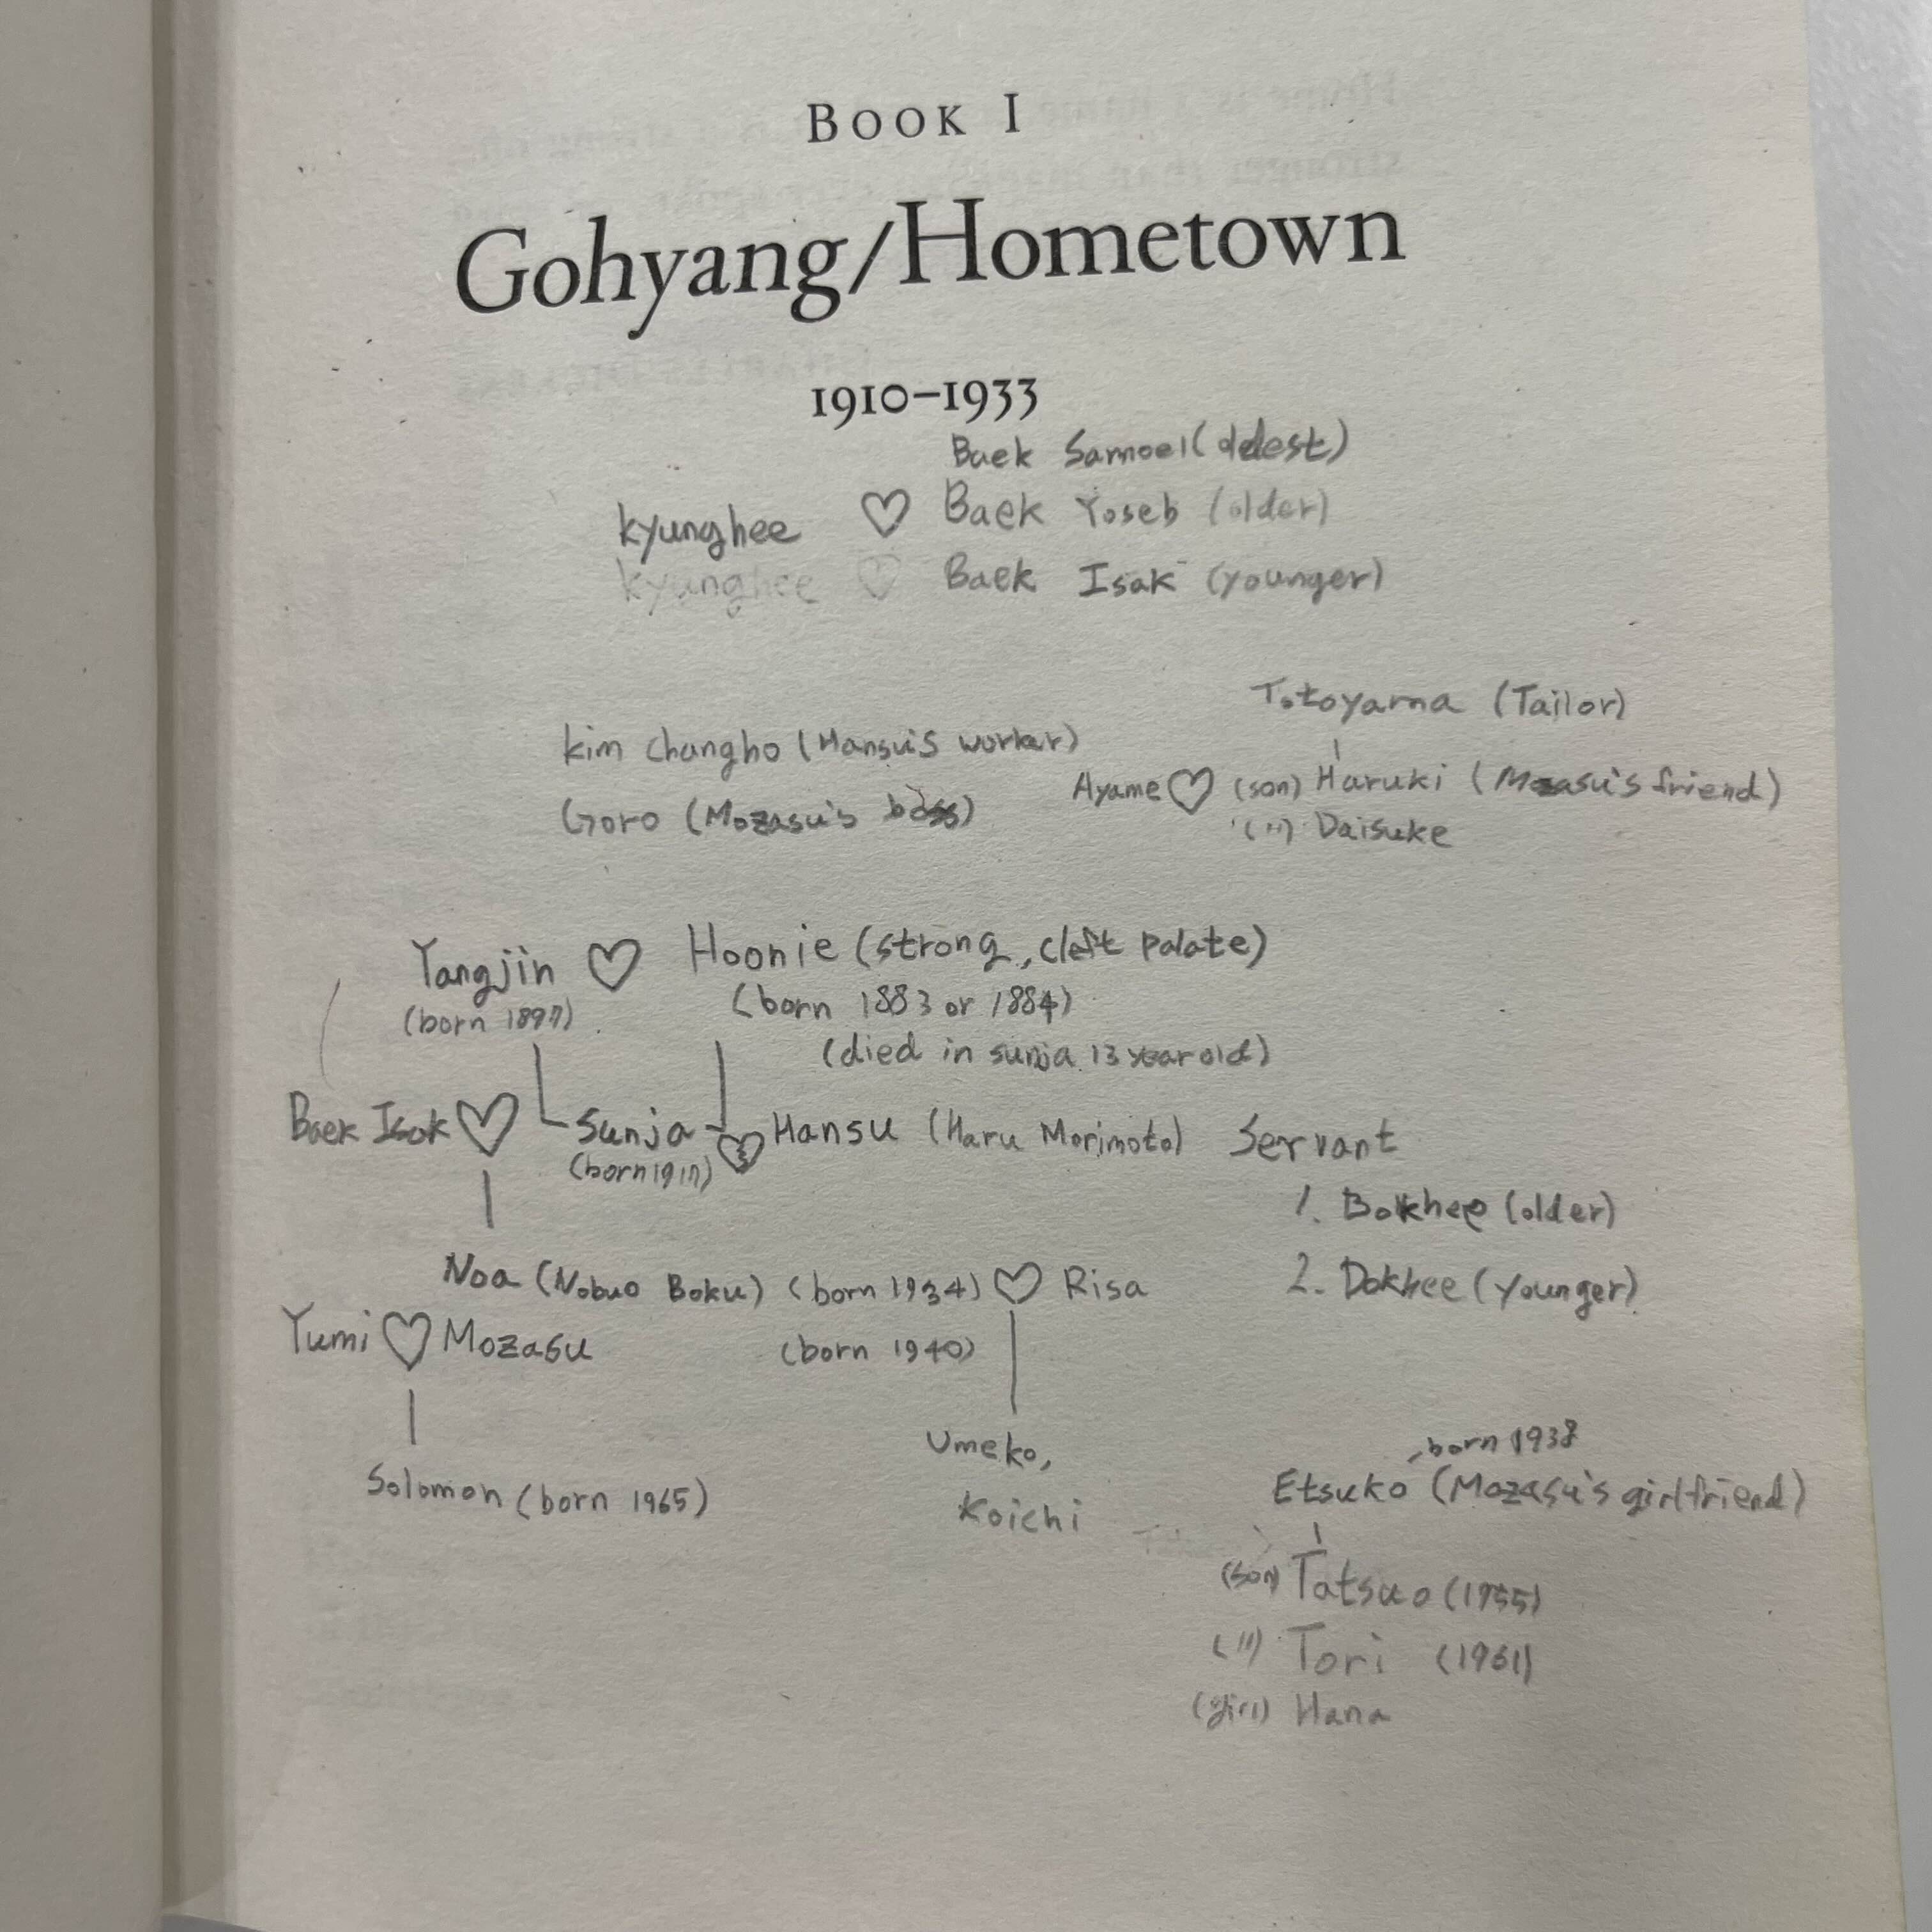 BOOK I
Gohyang/Hometown
1910–1933
Baek Samoel (oldest)
kyunghee ♡ Baek Yoseb (older)
kyunghee ♡ Baek Isak (younger)
Totoyama (Tailor)
kim changho (Hansu's worker)
Ayame ♡ (son) Haruki (Mozasu's friend)
Goro (Mozasu's boss)
(") Daisuke
Yangjin ♡ Hoonie (strong, cleft palate)
(born 1897) (born 1883 or 1884)
(died in sunja 13 year old)
Baek Isak ♡ Sunja Hansu (Haru Morimoto) Servant
(born 1917)
1. Bokhee (older)
Noa (Nobuo Boku) (born 1934) ♡ Risa
2. Dokhee (younger)
Yumi ♡ Mozasu (born 1940)
Umeko,
born 1938
Solomon (born 1965)
Etsuko (Mozasu's girlfriend)
Koichi
(son) Tatsuo (1955)
(") Tori (1961)
(girl) Hana